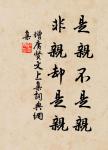 是親不是親
非親卻是親
增廣賢文上集詞典網
集